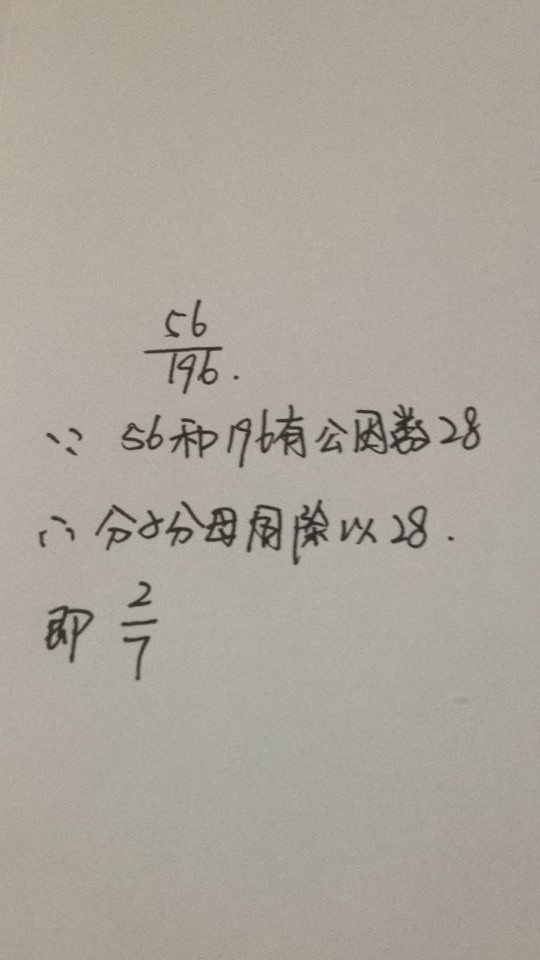 56
196.
∵ 56和196有公因数28
∴ 分子分母同除以28.
即 2/7